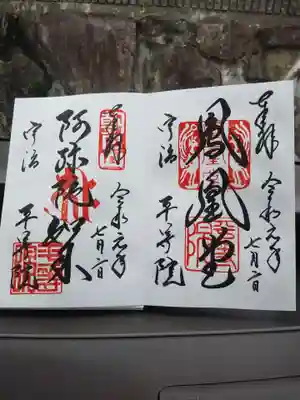 奉拝
令和元年
七月二日
鳳凰堂
宇治
平等院
奉拝
令和元年
七月二日
阿弥陀如来
宇治
平等院